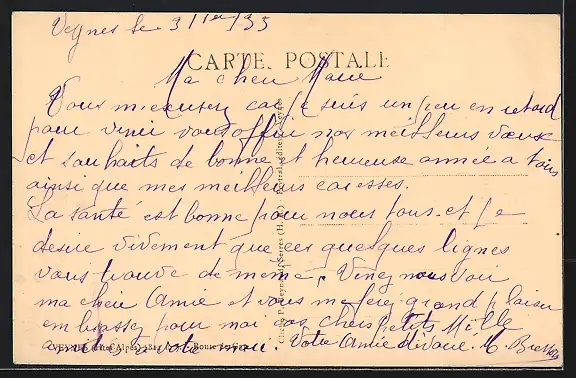 Veynes le 3 1er/35
CARTE POSTALE
Ma cheu Marie
Vous m'excuserez car je suis un peu en retard
pour venir vous offrir nos meilleurs vœux
et souhaits de bonne et heureuse année a tous
ainsi que mes meilleurs caresses.
La santé est bonne pour nous tous et je
desire vivement que ces quelques lignes
vous trouve de même, Venez nous voir
ma cheu Amie et vous me ferez grand plaisir
embrassez pour moi vos chers petits Mille
amitiés a votre mari. Votre Amie dévouée. M.
VEYNES (Htes Alpes) Route de Gap